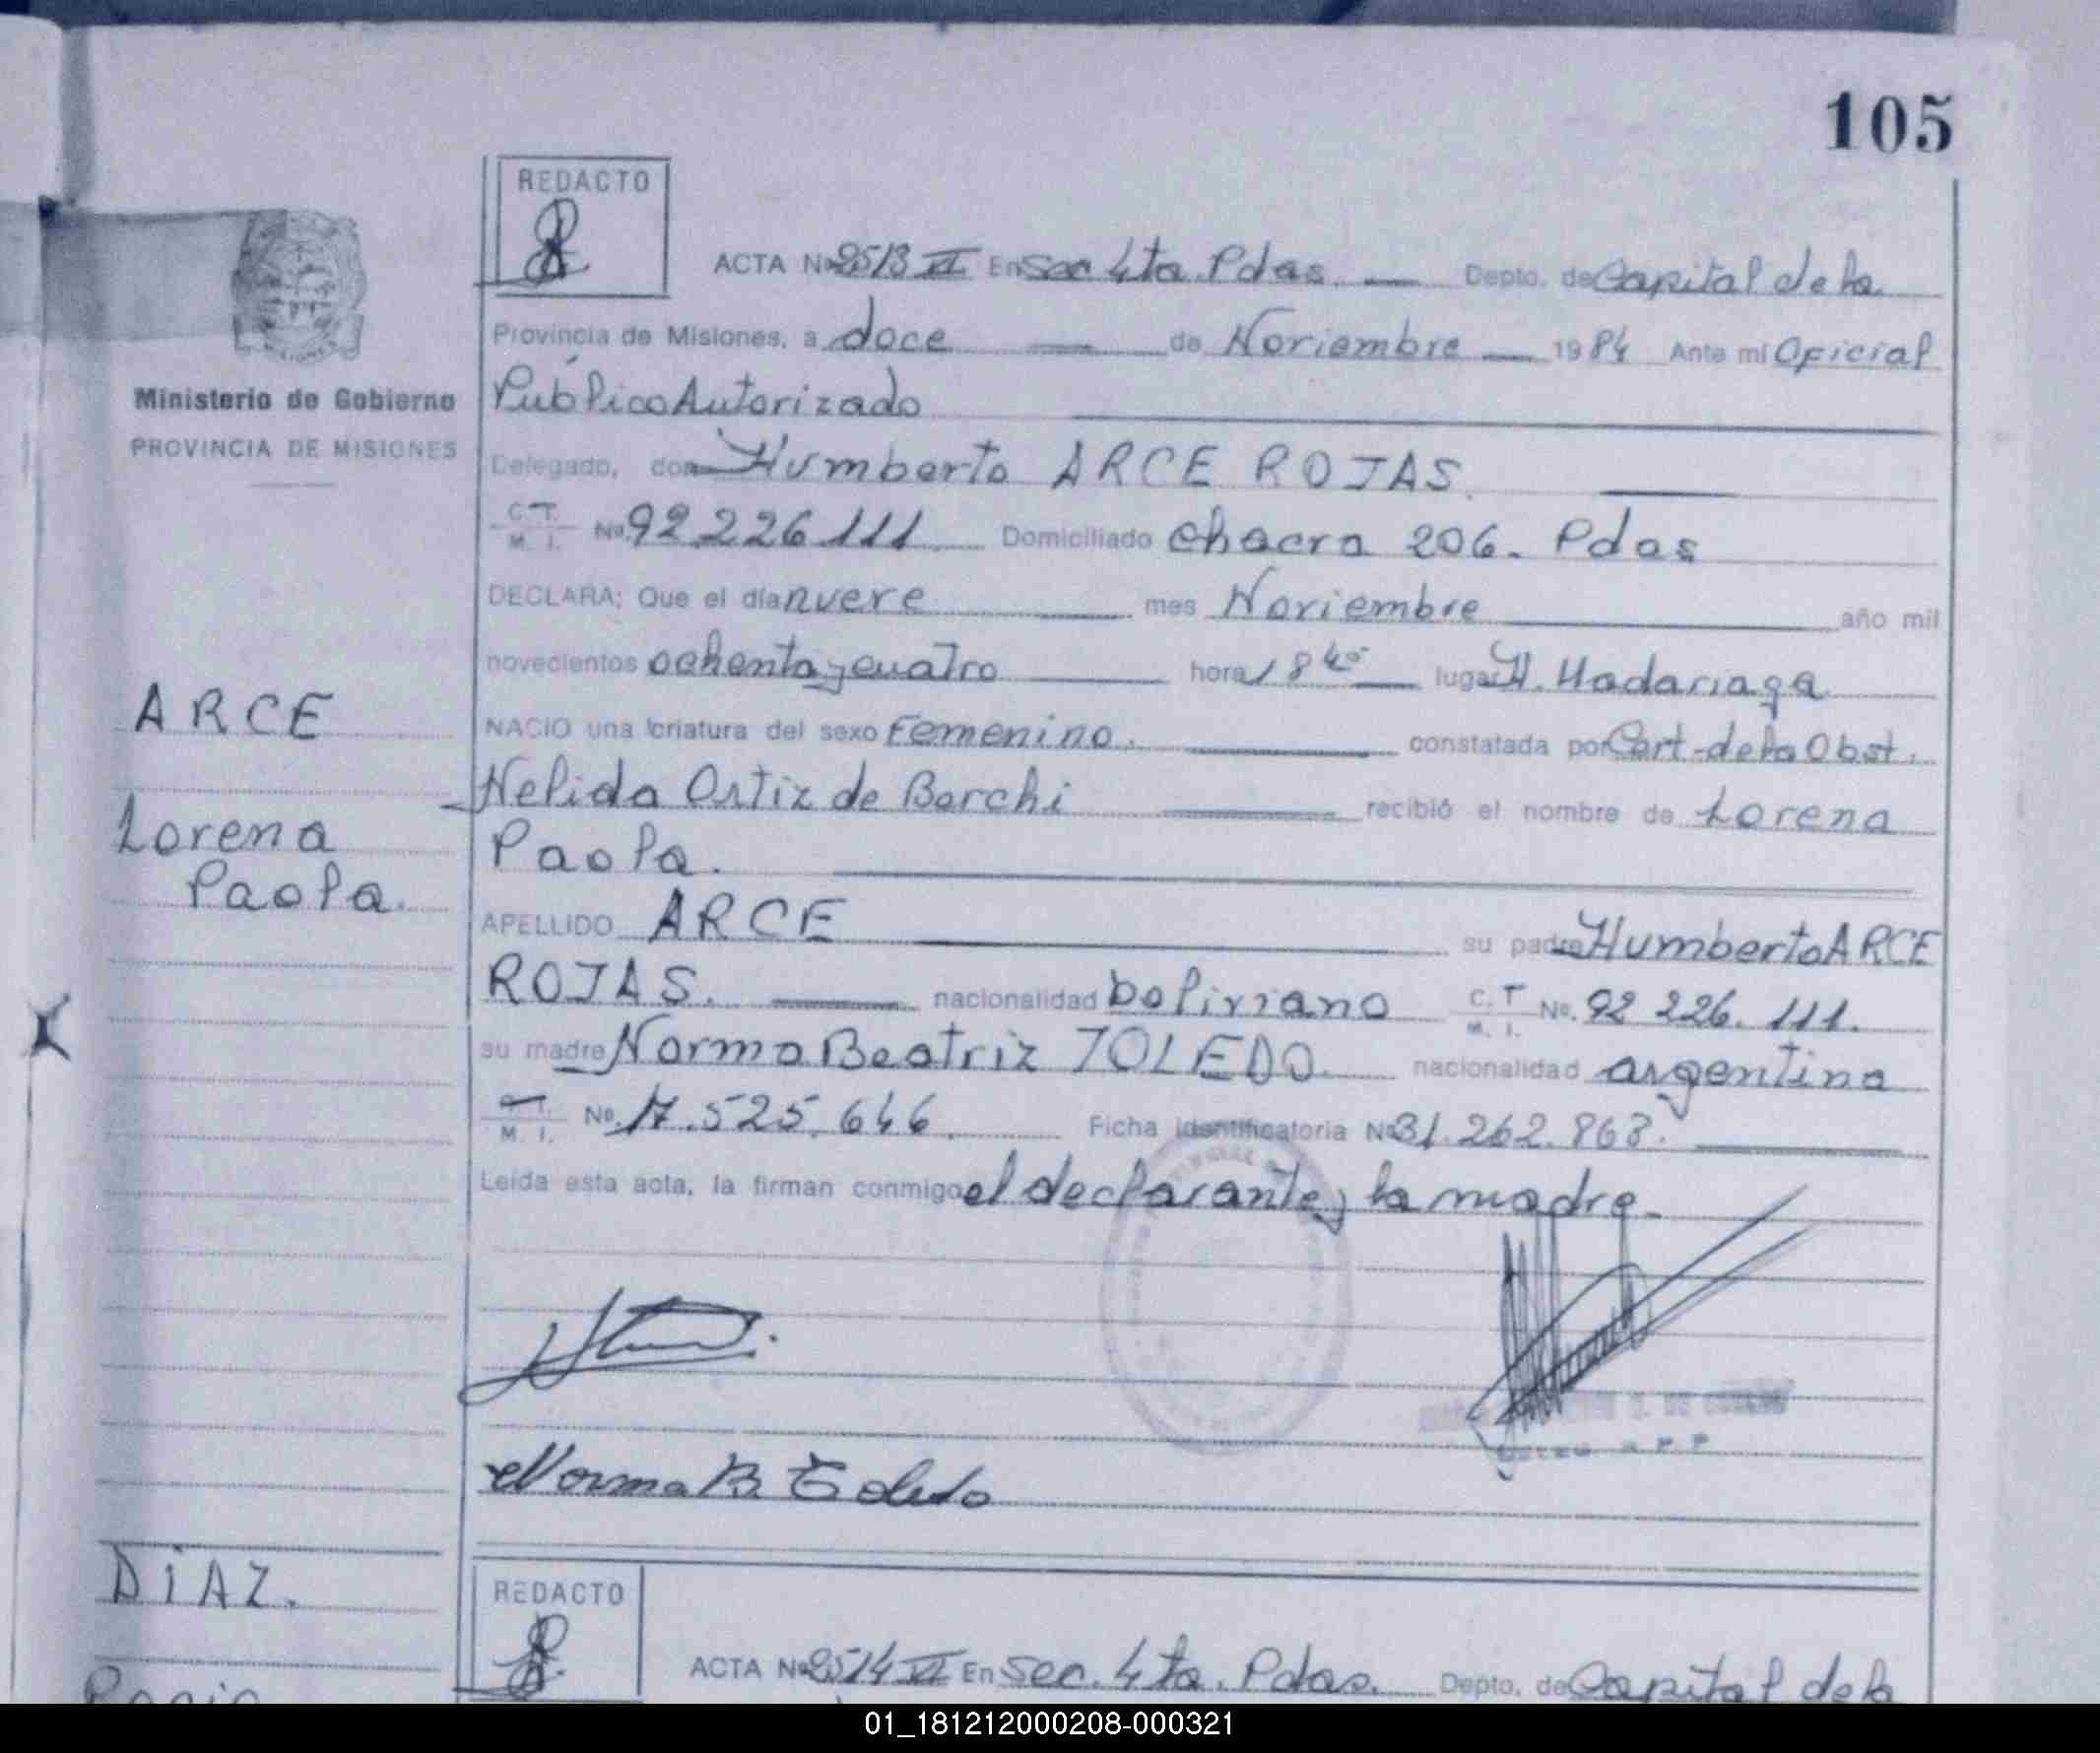 105
REDACTO
ACTA No 2513 VI En Sec 4ta. Pdas. Depto. de Capital de la
Provincia de Misiones, a doce de Noviembre 1984 Ante mi Oficial
Ministerio de Gobierno
PROVINCIA DE MISIONES
Público Autorizado
Delegado, don Humberto ARCE ROJAS.
C. T. M. I. No. 92.226.111 Domiciliado Chacra 206. Pdas
DECLARA; Que el día nueve mes Noviembre año mil
novecientos ochenta y cuatro hora 18 40 lugar H. Madariaga
ARCE
NACIO una criatura del sexo Femenino. constatada por Cert. de la Obst.
Nelida Ortiz de Borchi recibió el nombre de Lorena
Lorena
Paola.
Paola.
APELLIDO ARCE su padre Humberto ARCE
ROJAS. nacionalidad boliviano C. T M. I. No. 92 226. 111.
su madre Norma Beatriz TOLEDO. nacionalidad argentina
M. I. No. 17.525.646. Ficha Identificatoria No 31.262.863.
Leída esta acta, la firman conmigo el declarante y la madre.
Norma B. Toledo
DIAZ.
REDACTO
ACTA No 2514 VI En Sec. 4ta. Pdas. Depto. de Capital de la
01_181212000208-000321